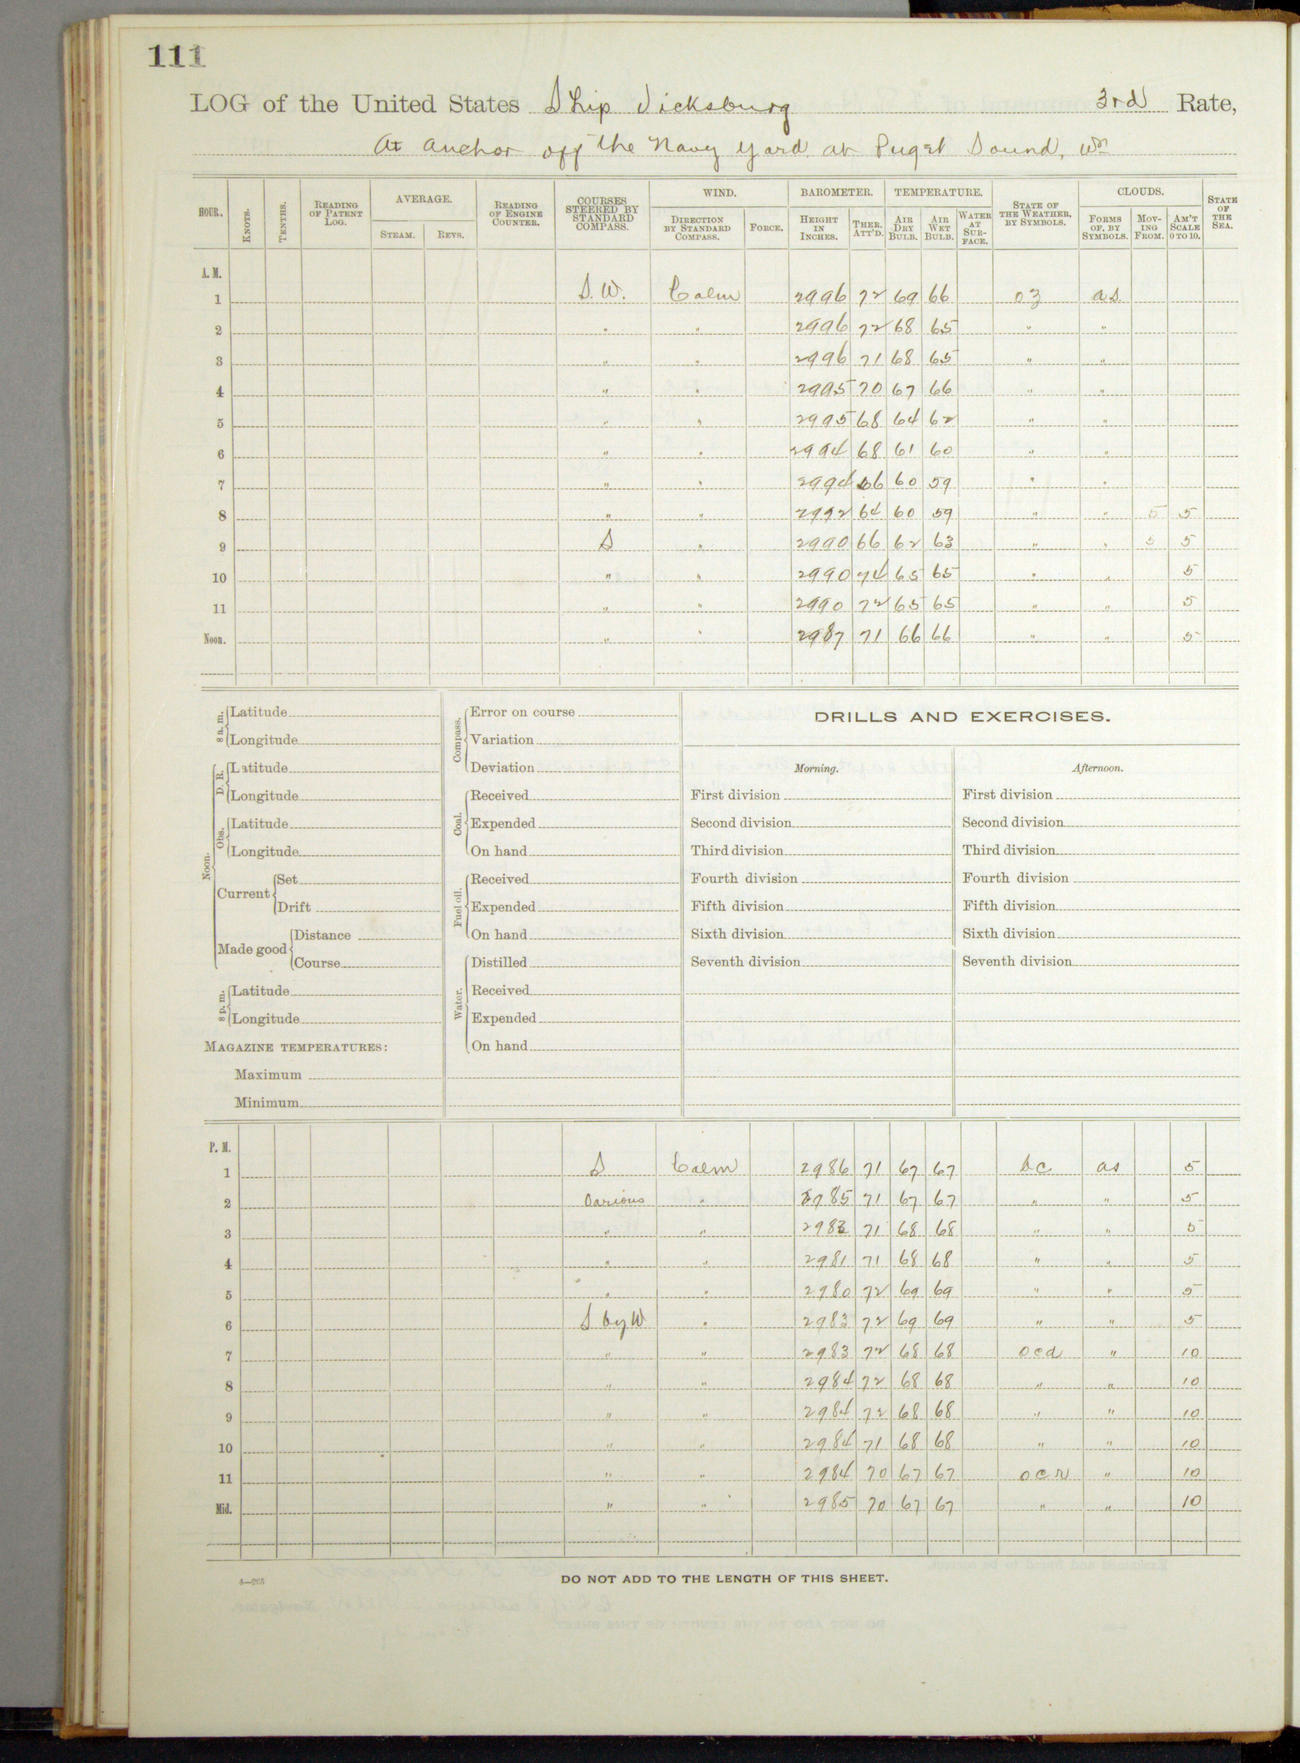 111
LOG of the United States Ship Vicksburg 3rd Rate,
At anchor off the Navy Yard at Puget Sound, Wn
HOUR. KNOTS. TENTHS. READING OF PATENT LOG. AVERAGE. STEAM. REVS. READING OF ENGINE COUNTER. COURSES STEERED BY STANDARD COMPASS. WIND. DIRECTION BY STANDARD COMPASS. FORCE. BAROMETER. HEIGHT IN INCHES. THER. ATT'D. TEMPERATURE. AIR DRY BULB. AIR WET BULB. WATER AT SURFACE. STATE OF THE WEATHER, BY SYMBOLS. CLOUDS. FORMS OF, BY SYMBOLS. MOVING FROM. AM'T SCALE 0 TO 10. STATE OF THE SEA.
A. M.
1 S.W. Calm 2996 72 69 66 oz as
2 " " 2996 72 68 65 " "
3 " " 2996 71 68 65 " "
4 " " 2995 70 67 66 " "
5 " " 2995 68 64 62 " "
6 " " 2994 68 61 60 " "
7 " " 2994 66 60 59 " "
8 " " 2992 64 60 59 " " 5 5
9 S " 2990 66 62 63 " " 5 5
10 " " 2990 74 65 65 " " 5
11 " " 2990 72 65 65 " " 5
Noon. " " 2987 71 66 66 " " 5
8 a. m. Latitude
Longitude
Noon. D. R. Latitude
Longitude
Obs. Latitude
Longitude
Current Set
Drift
Made good Distance
Course
8 p. m. Latitude
Longitude
MAGAZINE TEMPERATURES:
Maximum
Minimum
Compass. Error on course
Variation
Deviation
Coal. Received
Expended
On hand
Fuel oil. Received
Expended
On hand
Water. Distilled
Received
Expended
On hand
DRILLS AND EXERCISES.
Morning. Afternoon.
First division First division
Second division Second division
Third division Third division
Fourth division Fourth division
Fifth division Fifth division
Sixth division Sixth division
Seventh division Seventh division
P. M.
1 S Calm 2986 71 67 67 bc as 5
2 Various " 2985 71 67 67 " " 5
3 " " 2983 71 68 68 " " 5
4 " " 2981 71 68 68 " " 5
5 " " 2980 72 69 69 " " 5
6 S by W " 2983 72 69 69 " " 5
7 " " 2983 72 68 68 ocd " 10
8 " " 2984 72 68 68 " " 10
9 " " 2984 72 68 68 " " 10
10 " " 2984 71 68 68 " " 10
11 " " 2984 70 67 67 ocr " 10
Mid. " " 2985 70 67 67 " " 10
DO NOT ADD TO THE LENGTH OF THIS SHEET.